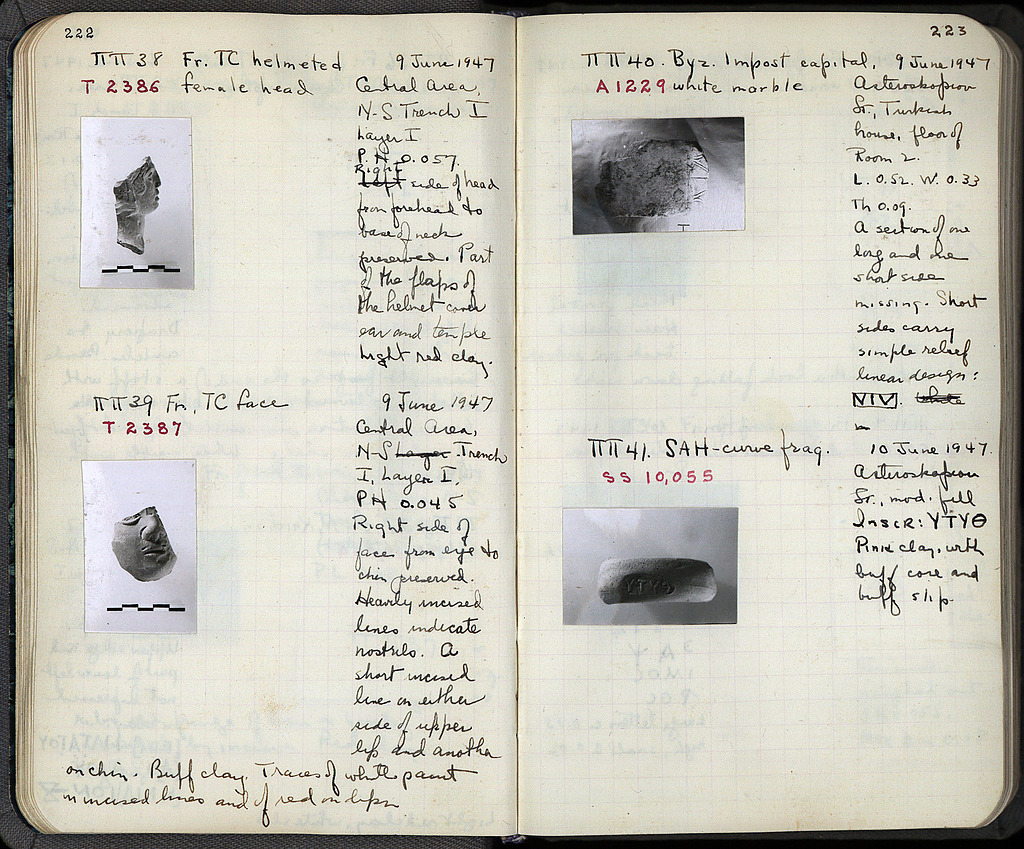 222
ΠΠ 38 Fr. TC helmeted 9 June 1947
T 2386 female head Central Area,
N-S Trench I
Layer I
P.H. 0.057.
Right
left side of head
from forehead to
base of neck
preserved. Part
of the flaps of
the helmet cover
ear and temple
Light red clay.
ΠΠ 39 Fr. TC face 9 June 1947
T 2387 Central Area,
N-S Layer Trench
I, Layer I.
PH 0.045
Right side of
face from eye to
chin preserved.
Heavily incised
lines indicate
nostrils. A
short incised
line on either
side of upper
lip and another
on chin. Buff clay. Traces of white paint
in incised lines and of red on lips
223
ΠΠ 40. Byz. Impost capital, 9 June 1947
A 1229 white marble Asteroskopion
St., Turkish
house, floor of
Room 2.
L. 0.52. W. 0.33
Th 0.09.
A section of one
long and one
short side
missing. Short
sides carry
simple relief
linear design:
VIV. white
m
ΠΠ 41. SAH-curve frag. 10 June 1947.
SS 10,055 Asteroskopion
St., mod. fill
Inscr: ΥΤΥΘ
Pink clay, with
buff core and
buff slip.
ΥΤΥΘ